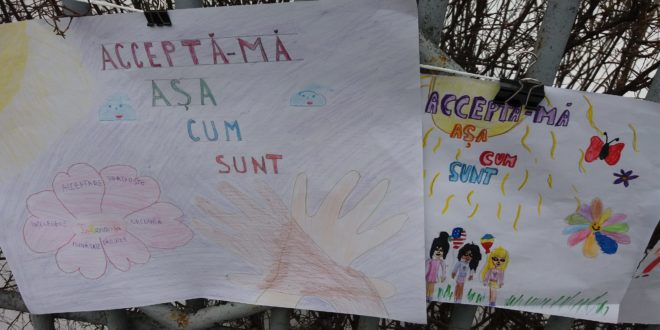 ACCEPTĂ-MĂ
AȘA
CUM
SUNT
ACCEPTARE
Toleranța
ACCEPTĂ-MĂ
AȘA
CUM
SUNT